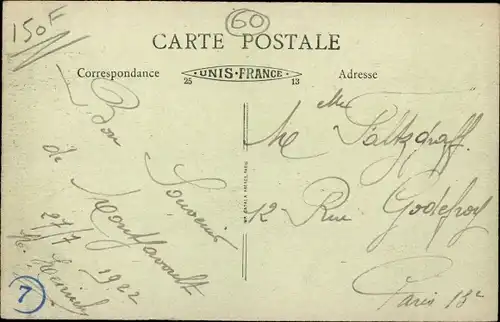 150F
60
CARTE POSTALE
Correspondance
UNIS-FRANCE
25 13
Adresse
Bon
Souvenir
de Montfavoult
27/7 1922
7
M Me Saltzdraff
12 Rue Godefroy
Paris 13e